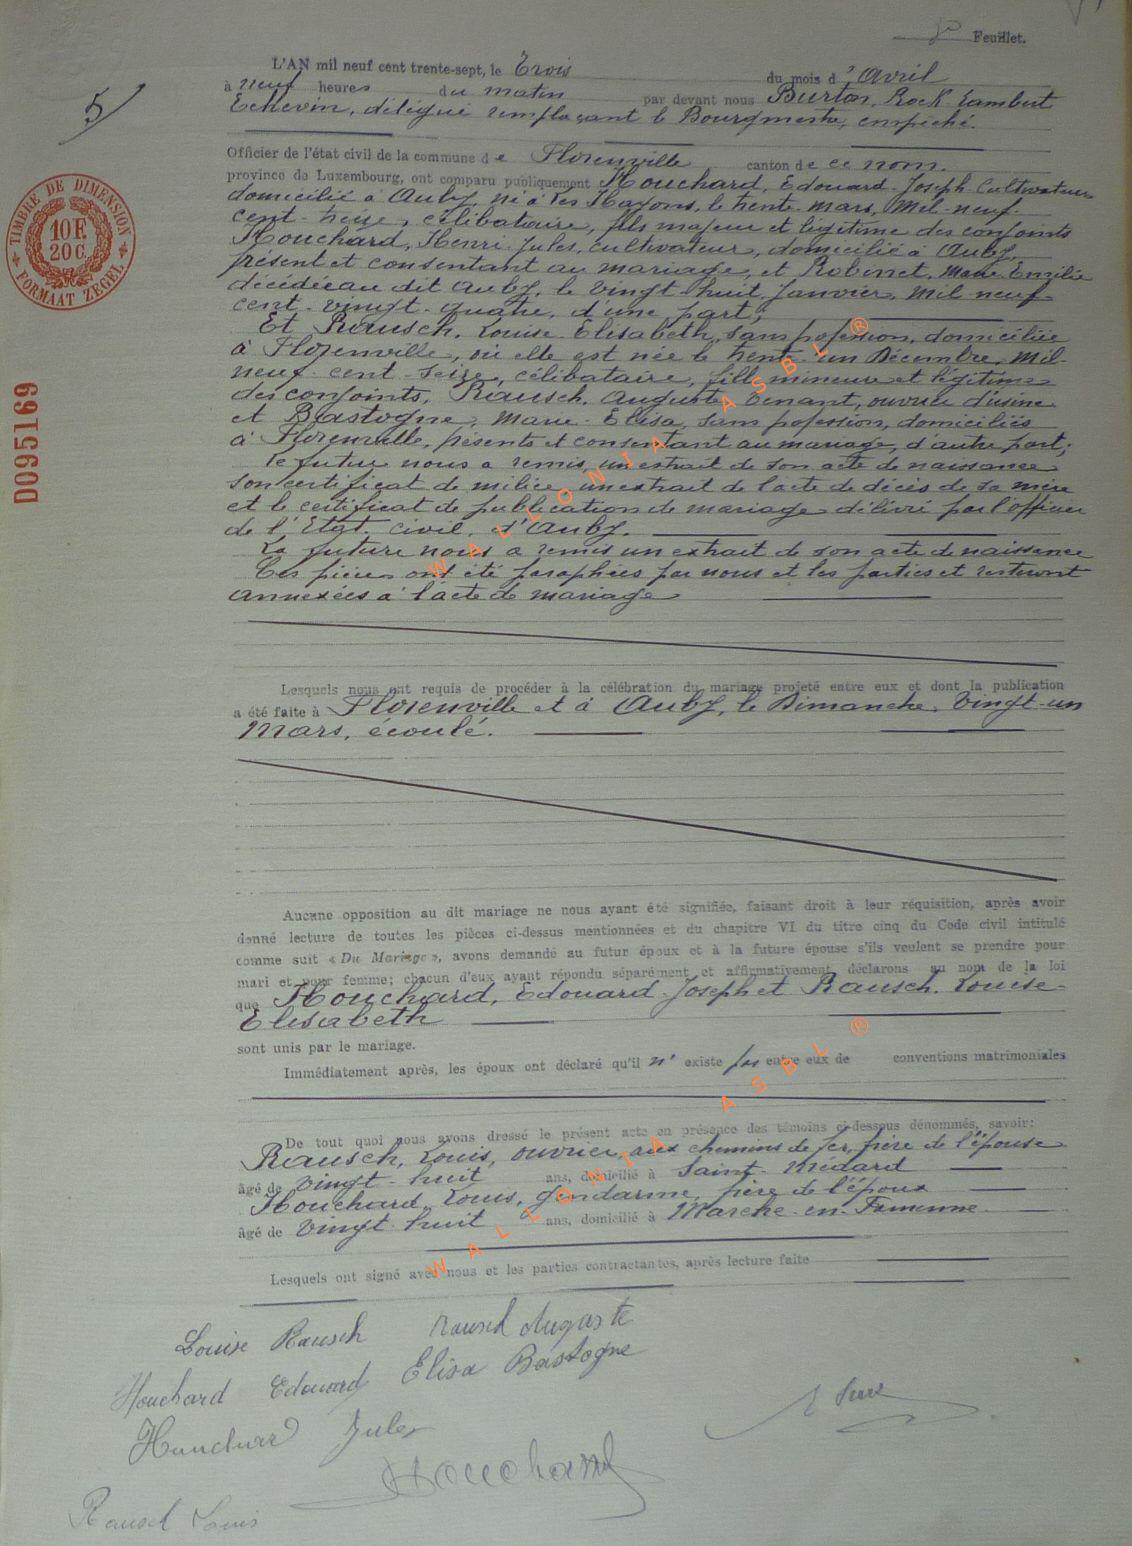 5e Feuillet.
L'AN mil neuf cent trente-sept, le Trois du mois d'Avril
à neuf heures du matin par devant nous Burton, Rock Lambert
Echevin, délégué remplaçant le Bourgmestre, empêché.
Officier de l'état civil de la commune de Florenville canton de ce nom.
province de Luxembourg, ont comparu publiquement Houchard, Edouard-Joseph Cultivateur
domicilié à Auby, né à Les Hayons, le trente mars, Mil-neuf-
cent-treize, célibataire, fils majeur et légitime des conjoints
Houchard, Henri-Jules, cultivateur, domicilié à Auby,
présent et consentant au mariage, et Robinet, Marie-Emilie
décédée au dit Auby, le vingt-huit Janvier, mil-neuf-
cent-vingt-quatre, d'une part;
Et Rausch, Louise-Elisabeth, sans profession, domiciliée
à Florenville, où elle est née le trente-un Décembre, Mil-
neuf-cent-seize, célibataire, fille mineure et légitime
des conjoints, Rausch, Auguste Venant, ouvrier d'usine
et Bastogne, Marie-Elisa, sans profession, domiciliés
à Florenville, présents et consentant au mariage, d'autre part;
Le futur nous a remis, un extrait de son acte de naissance
son certificat de milice, un extrait de l'acte de décès de sa mère
et le certificat de publication de mariage délivré par l'officier
de l'Etat civil, d'Auby.
La future nous a remis un extrait de son acte de naissance
Ces pièces ont été paraphées par nous et les parties et resteront
annexées à l'acte de mariage
Lesquels nous ont requis de procéder à la célébration du mariage projeté entre eux et dont la publication
a été faite à Florenville et à Auby, le Dimanche, Vingt-un
Mars, écoulé.
Aucune opposition au dit mariage ne nous ayant été signifiée, faisant droit à leur réquisition, après avoir
donné lecture de toutes les pièces ci-dessus mentionnées et du chapitre VI du titre cinq du Code civil intitulé
comme suit « Du Mariage », avons demandé au futur époux et à la future épouse s'ils veulent se prendre pour
mari et pour femme; chacun d'eux ayant répondu séparément et affirmativement, déclarons au nom de la loi
que Houchard, Edouard-Joseph et Rausch, Louise-
Elisabeth
sont unis par le mariage.
Immédiatement après, les époux ont déclaré qu'il n'existe pas entre eux de conventions matrimoniales
De tout quoi nous avons dressé le présent acte en présence des témoins ci-dessous dénommés, savoir:
Rausch, Louis, ouvrier, aux chemins de fer, frère de l'épouse
âgé de vingt-huit ans, domicilié à Saint-Médard
Houchard, Louis, gendarme, frère de l'époux
âgé de vingt huit ans, domicilié à Marche-en-Famenne
Lesquels ont signé avec nous et les parties contractantes, après lecture faite
Louise Rausch Rausch Auguste
Houchard Edouard Elisa Bastogne
Houchard Jules
Houchard
Rausch Louis
5/
TIMBRE DE DIMENSION
10 F.
20 C.
FORMAAT ZEGEL
D095169
WALLONIA ASBL ®
WALLONIA ASBL ®